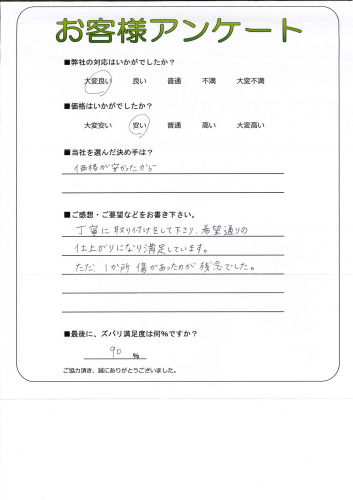 お客様アンケート
■弊社の対応はいかがでしたか?
大変良い 良い 普通 不満 大変不満
■価格はいかがでしたか?
大変安い 安い 普通 高い 大変高い
■当社を選んだ決め手は?
価格が安かったから
■ご感想・ご要望などをお書き下さい。
丁寧に取り付けをして下さり、希望通りの
仕上がりになり満足しています。
ただ、1か所傷があったのが残念でした。
■最後に、ズバリ満足度は何%ですか?
90 %
ご協力頂き、誠にありがとうございました。